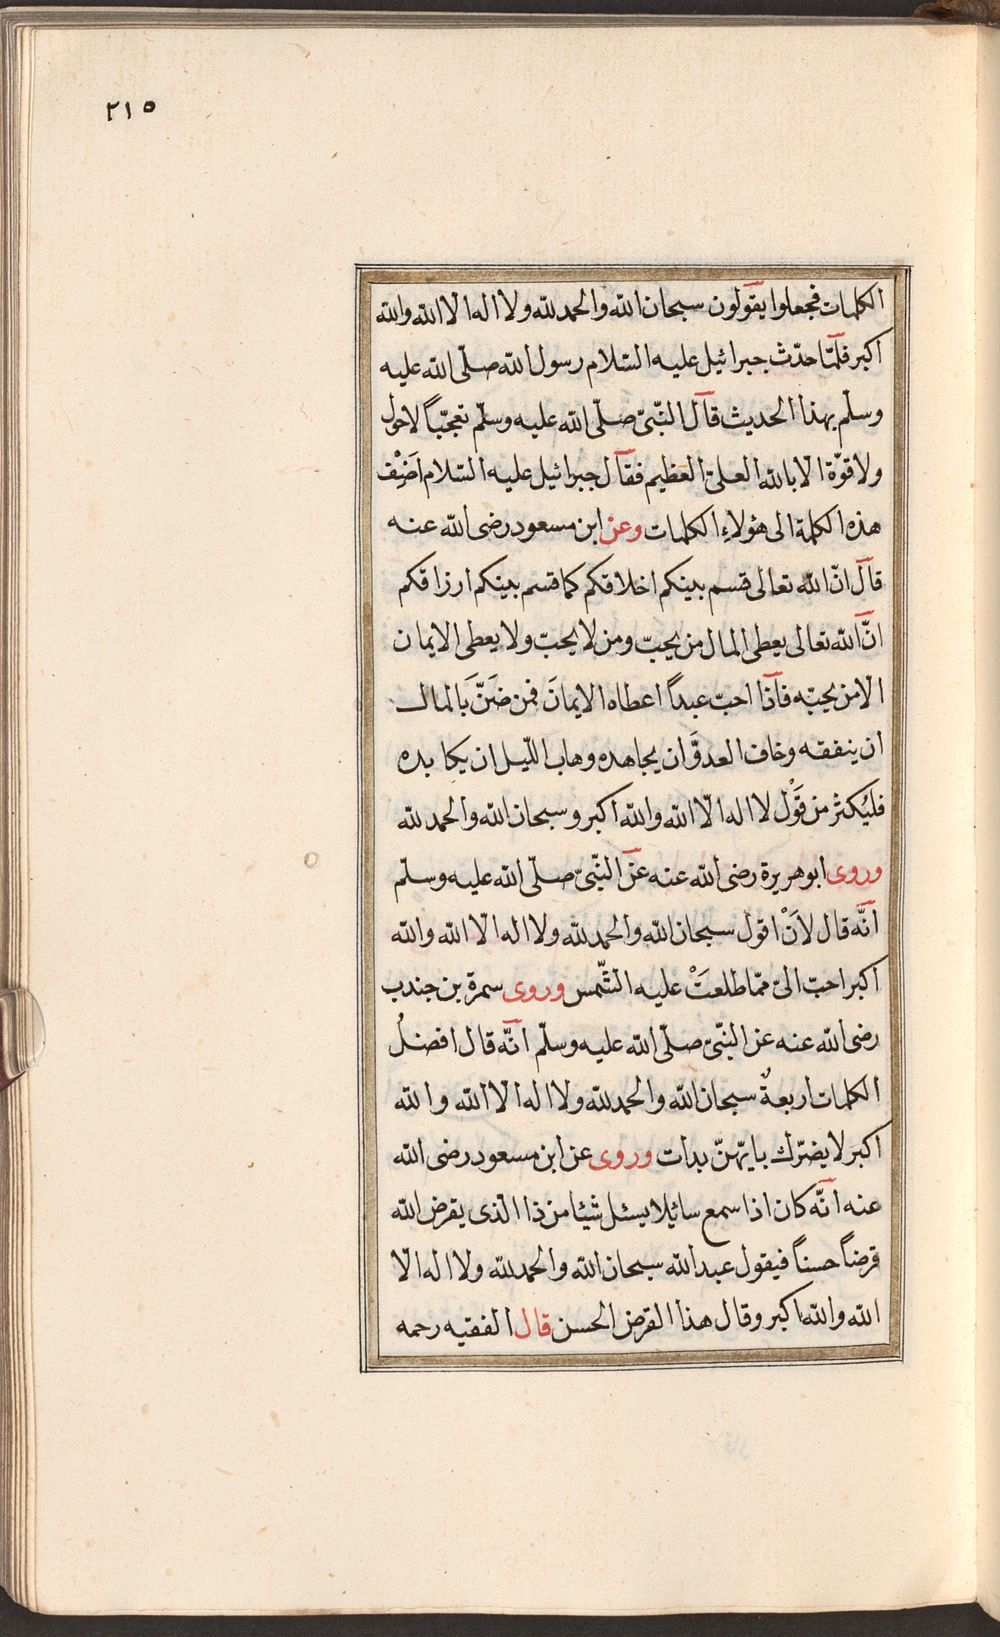 ٢١٥
الكلمات فجعلوا يقولون سبحان الله والحمد لله ولا اله الا الله والله
اكبر فلمّا حدّث جبرائيل عليه السّلام رسول الله صلّى الله عليه
وسلّم بهذا الحديث قال النّبىّ صلّى الله عليه وسلّم تعجّباً لاحول
ولا قوّة الا بالله العلىّ العظيم فقال جبرائيل عليه السّلام اَضِفْ
هذه الكلمة الى هؤلاءِ الكلمات وعن ابن مسعود رضى الله عنه
قال انّ الله تعالى قسم بينكم اخلاقكم كما قسم بينكم ارزاقكم
انّ الله تعالى يعطى المال من يحبّ ومن لا يحبّ ولا يعطى الايمان
الا من يحبّه فاذا احبّ عبداً اعطاه الايمانَ فمن ضَنَّ بالمال
ان ينفقه وخاف العدوَّ ان يجاهده وهاب اللّيل ان يكابده
فليُكثر من قَوْل لا اله الّا الله والله اكبر وسبحان الله والحمد لله
وروى ابو هريرة رضى الله عنه عن النّبىّ صلّى الله عليه وسلّم
انّه قال لاَنْ اقول سبحان الله والحمد لله ولا اله الا الله والله
اكبر احبّ الىّ ممّا طلعَتْ عليه الشّمس وروى سمرة بن جندب
رضى الله عنه عن النّبىّ صلّى الله عليه وسلّم انّه قال افضلُ
الكلمات اربعةٌ سبحان الله والحمد لله ولا اله الا الله والله
اكبر لا يضرّك بايّهنّ بدات وروى عن ابن مسعود رضى الله
عنه انّه كان اذا سمع سائلا يسئل شيئا من ذا الذى يقرض الله
قرضاً حسناً فيقول عبد الله سبحان الله والحمد لله ولا اله الا
الله والله اكبر وقال هذا القرض الحسن قال الفقيه رحمه